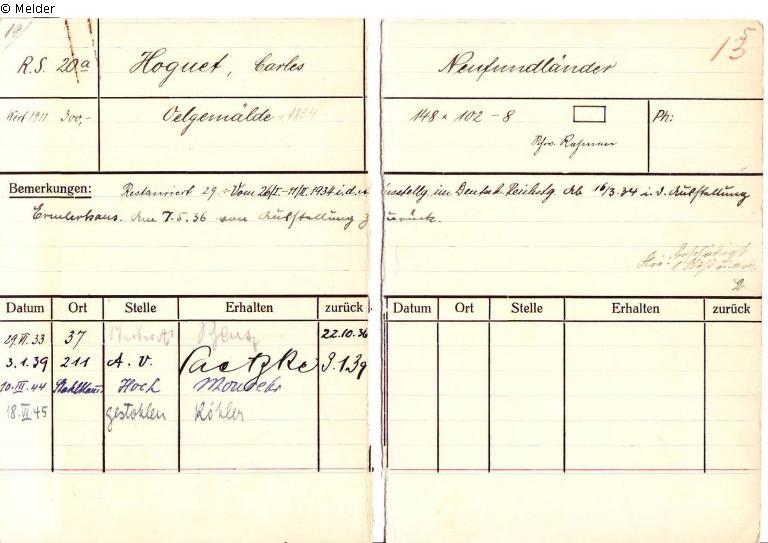 © Melder
19/
R.S. 20a
Hoguet, Carles
Neufundländer
15
Wert 1911 300,-
Oelgemälde 1854
148 x 102 - 8
Ph:
Schw. Rahmen
Bemerkungen: Restauriert 29. Vom 26/I-11/II.1934 i.d. Ausstellg. im Deutsch. Reichstg. Ab 16/3.34 i.d. Ausstellung
Ermlerhaus. Am 7.5.36 von Ausstellung zurück.
Datum Ort Stelle Erhalten zurück Datum Ort Stelle Erhalten zurück
29.VI.33 37 22.10.36
3.1.39 211 A.V. Paetzke 3.1.39
10.III.44 Stahlkam. Hoch
18.VI.45 gestohlen Köhler